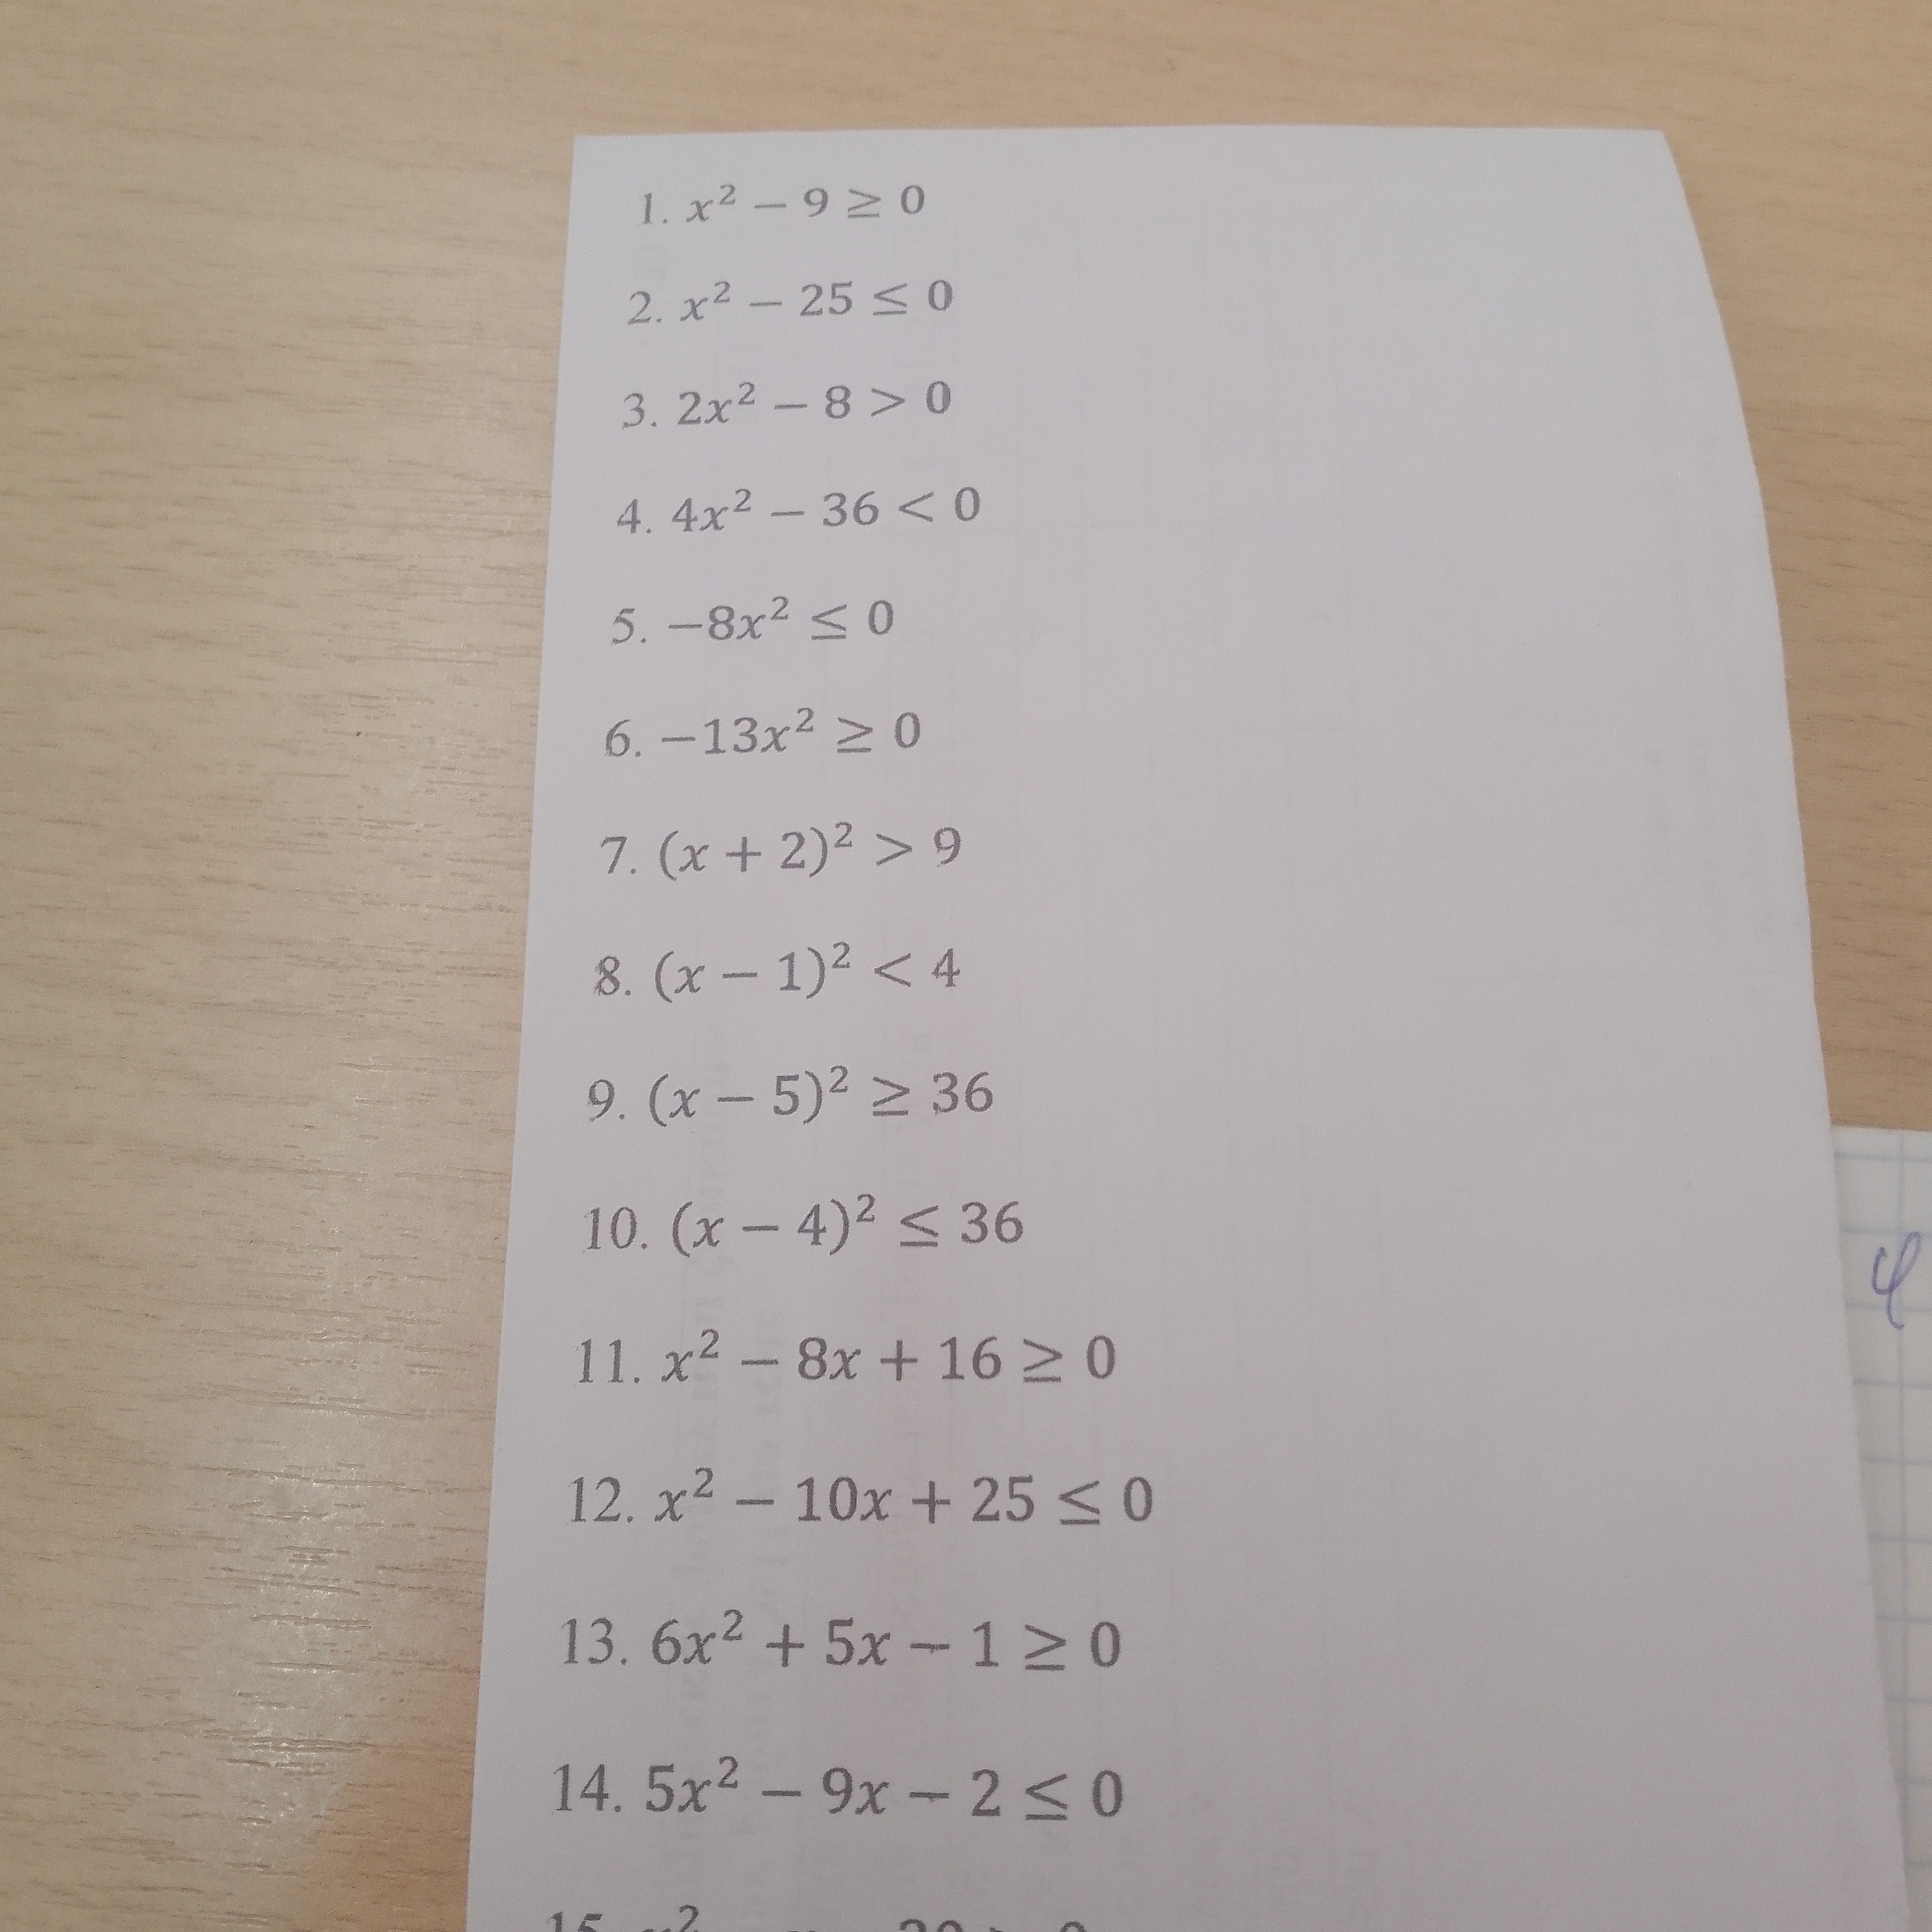 1. x² − 9 ≥ 0
2. x² − 25 ≤ 0
3. 2x² − 8 > 0
4. 4x² − 36 < 0
5. −8x² ≤ 0
6. −13x² ≥ 0
7. (x + 2)² > 9
8. (x − 1)² < 4
9. (x − 5)² ≥ 36
10. (x − 4)² ≤ 36
11. x² − 8x + 16 ≥ 0
12. x² − 10x + 25 ≤ 0
13. 6x² + 5x − 1 ≥ 0
14. 5x² − 9x − 2 ≤ 0